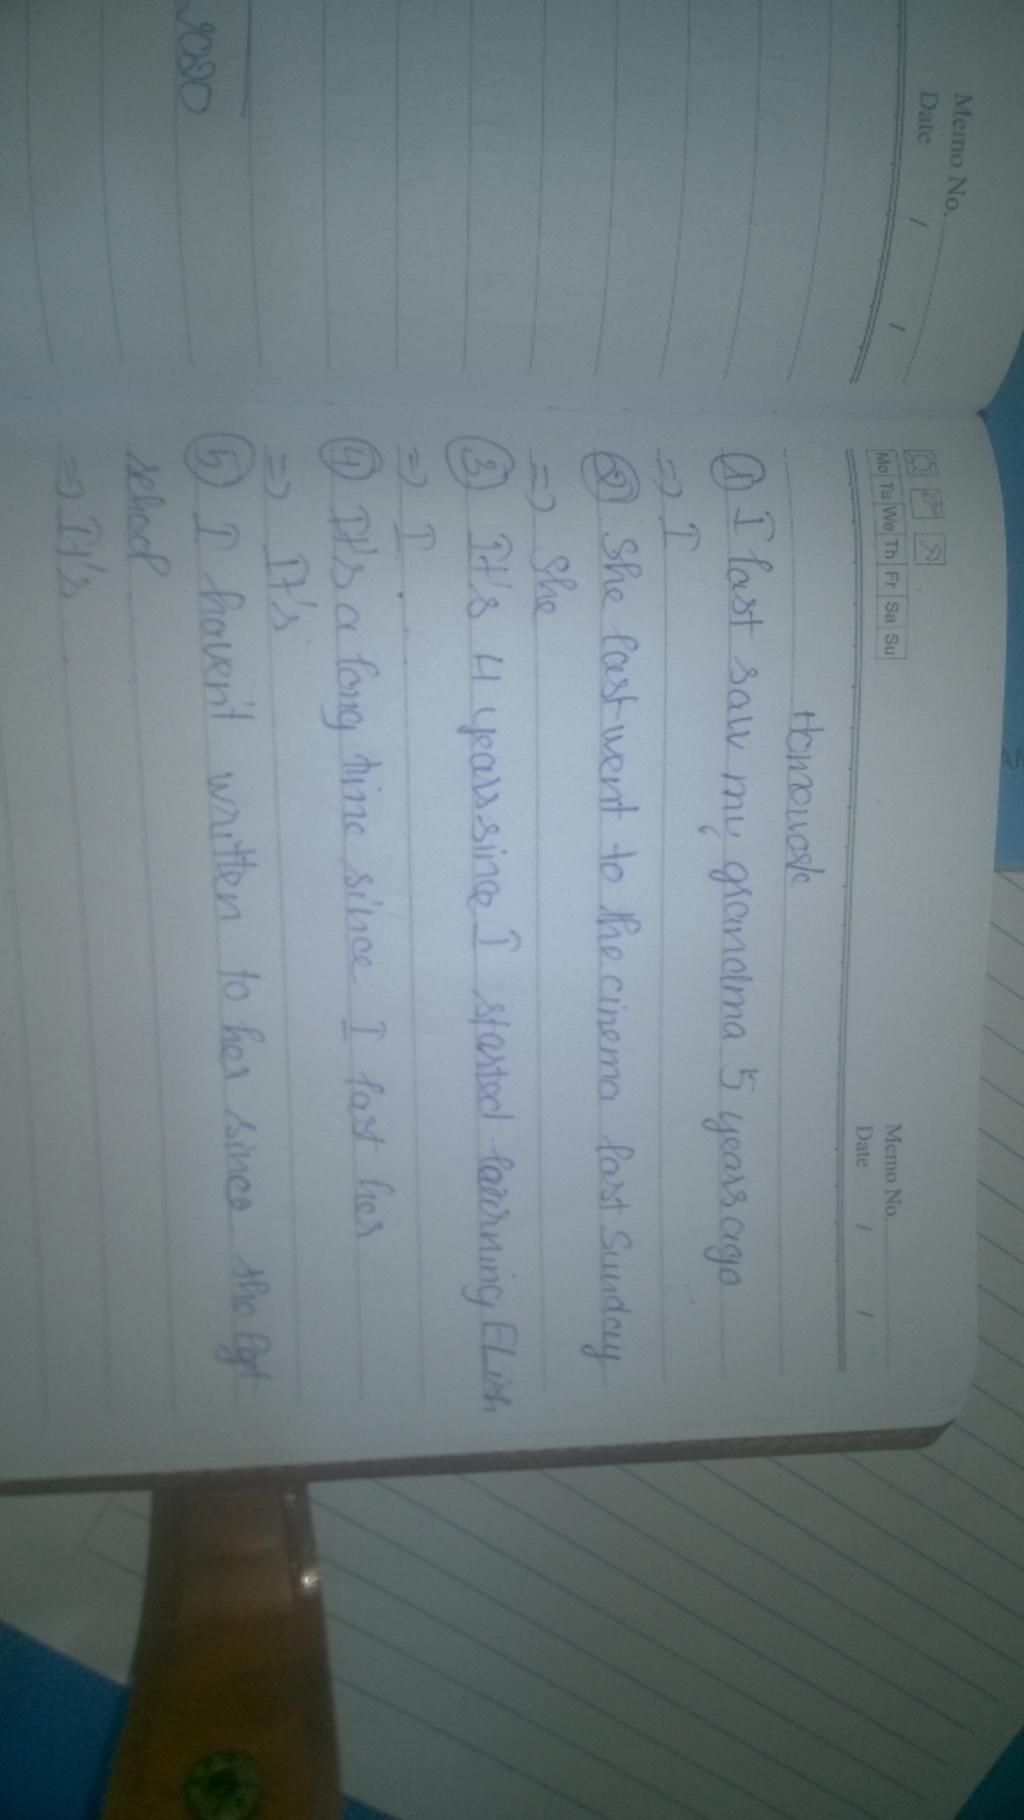 Memo No.
Date / /
Mo Tu We Th Fr Sa Su
Memo No.
Date / /
Homework
① I last saw my grandma 5 years ago
=> I
② She last went to the cinema last Sunday
=> She
③ It's 4 years since I started learning ELish
=> I
④ It's a long time since I last her
=> It's
⑤ I haven't written to her since the
school
=> It's